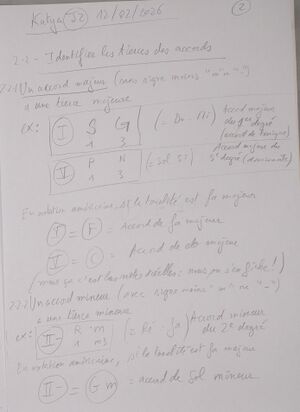 Katya S2 12/02/2026 2
2.2 - Identifier les tierces des accords
2.2.1 Un accord majeur (sans signe moins "m" "-")
a une tierce majeure
ex: I S G (= Do - Mi) Accord majeur
1 3 du 1er degré
(accord de tonique)
V P N (= Sol Si) Accord majeur du
1 3 5e degré (dominante)
En notation américaine, si la tonalité est fa majeur
I = F = Accord de fa majeur
I = C = Accord de do majeur
(mais ça c'est les notes réelles: nous on s'en fiche!)
2.2.2 Un accord mineur (avec signe moins "m" ou "-")
a une tierce mineure
ex: II- R m (= Ré - Fa) Accord mineur
1 m3 du 2e degré
En notation américaine, si la tonalité est fa majeur
II- = Gm = accord de sol mineur